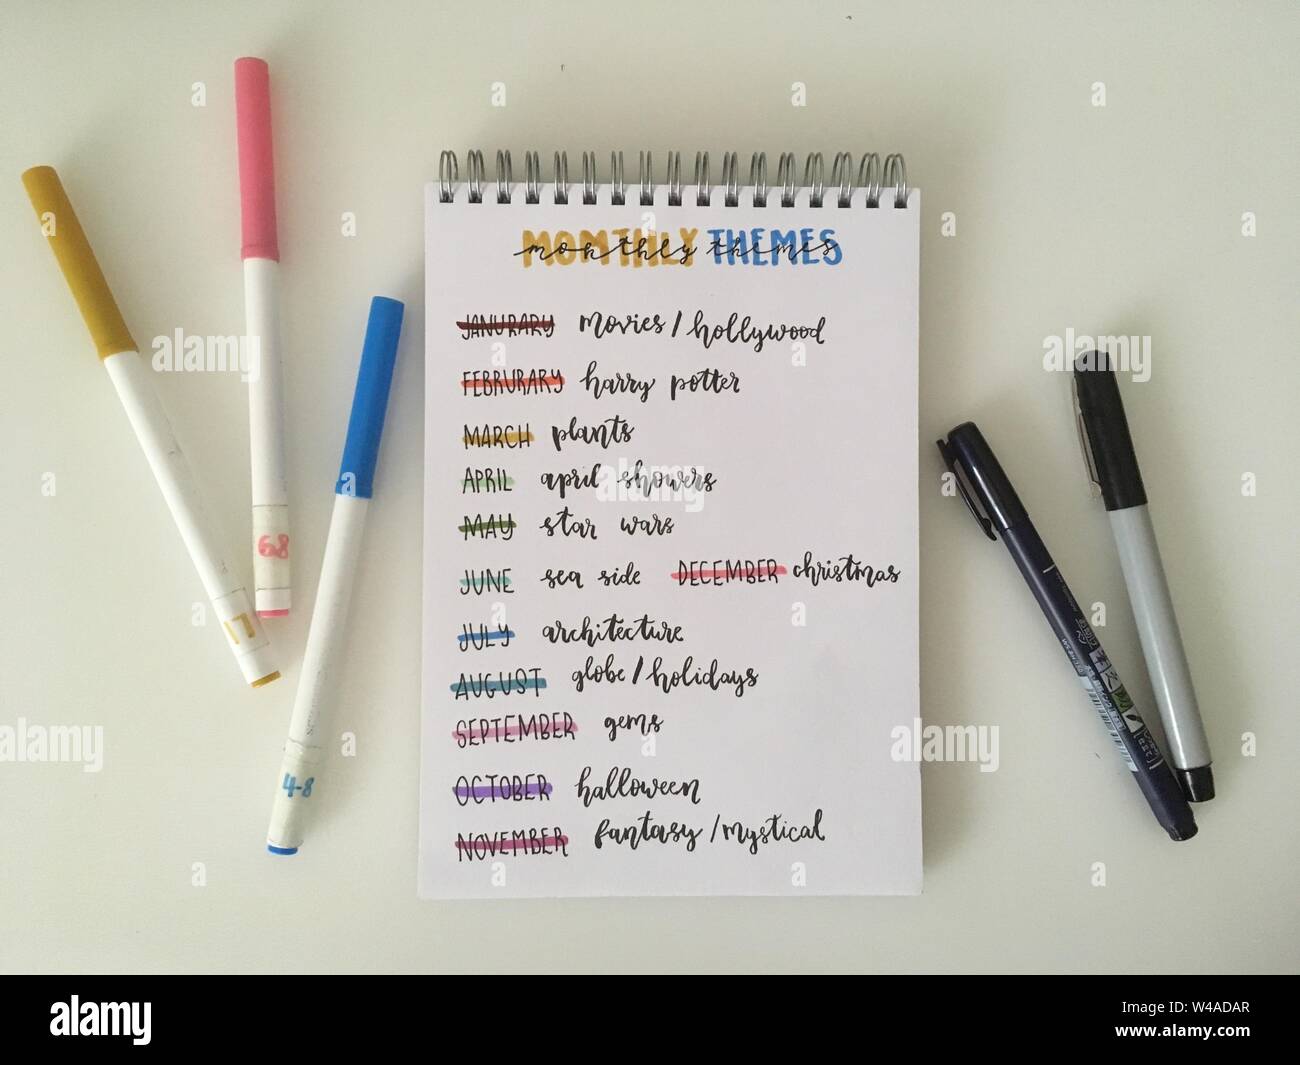 MOMTHLY THEMES
monthly themes
JANURARY movies/hollywood
FEBRURARY harry potter
MARCH plants
APRIL april showers
MAY star wars
JUNE sea side
DECEMBER christmas
JULY architecture
AUGUST globe/holidays
SEPTEMBER gems
OCTOBER halloween
NOVEMBER fantasy/mystical
17
68
4-8
alamy
alamy
Image ID: W4ADAR
www.alamy.com